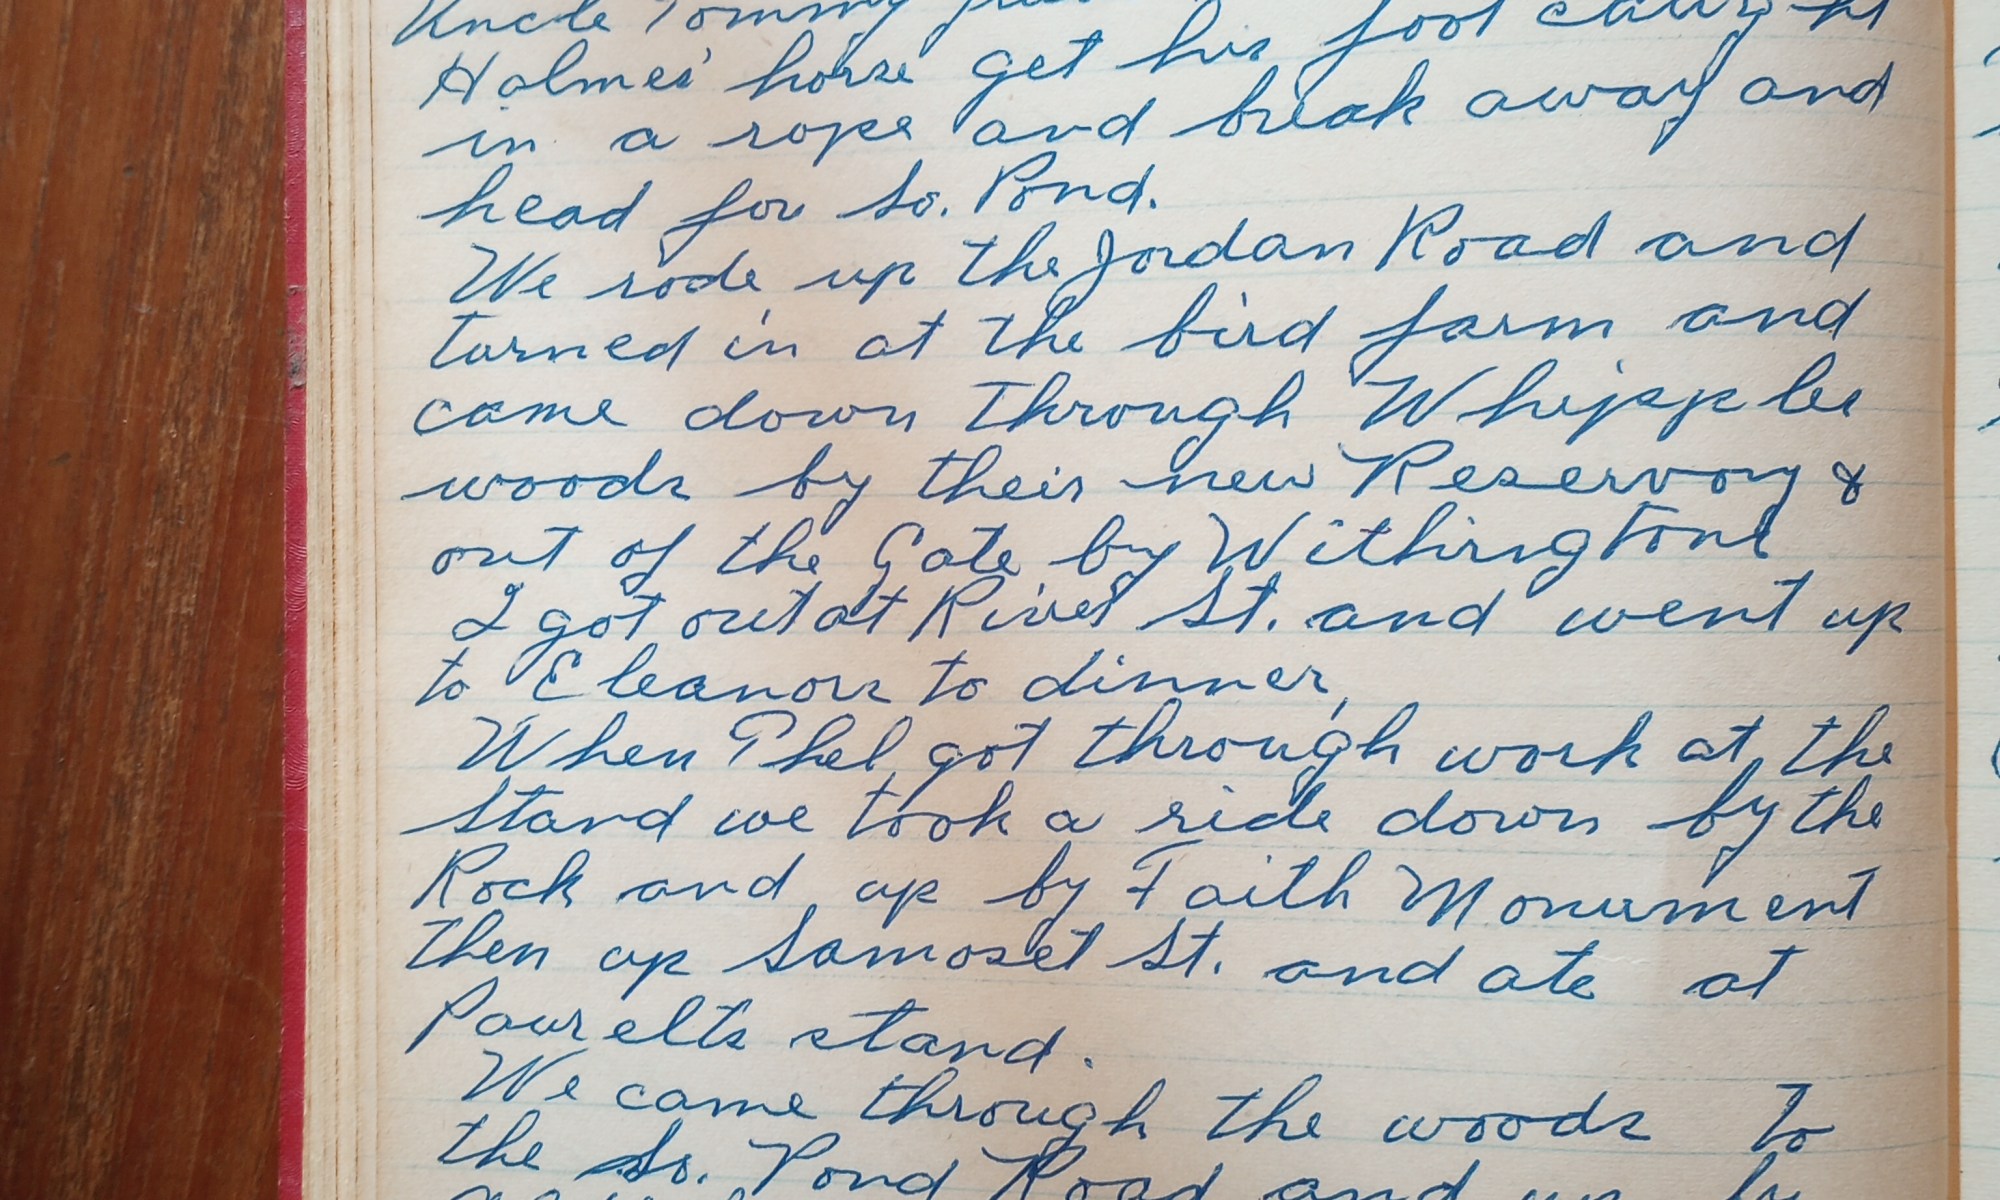 Uncle Tommy
Holmes' horse get his foot caught
in a rope and break away and
head for So. Pond.
We rode up the Jordan Road and
turned in at the bird farm and
came down through Whipples
woods by their new Reservory &
out of the Gate by Withingtons
I got out at River St. and went up
to Eleanors to dinner,
When Phel got through work at the
stand we took a ride down by the
Rock and up by Faith Monument
then up Samoset St. and ate at
stand.
We came through the woods to
the So. Pond Road and up by